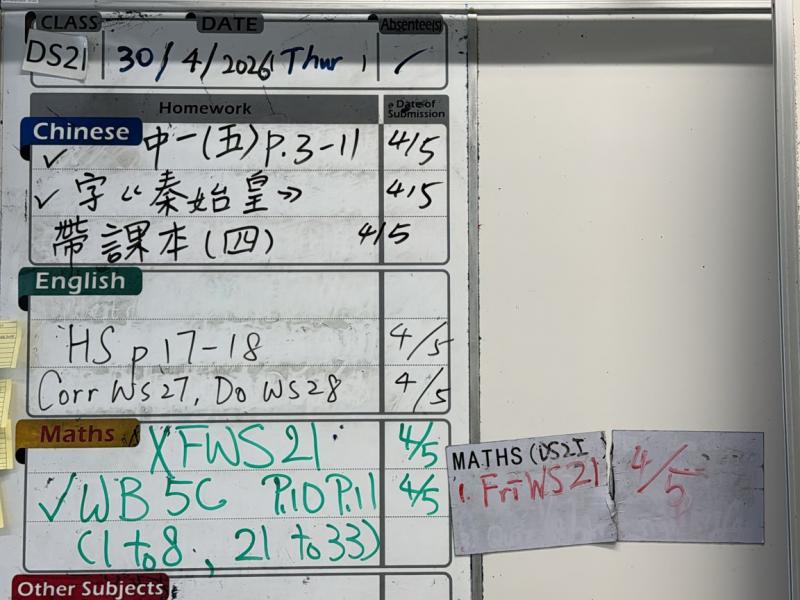 CLASS DATE Absentee(s)
DS21 30/4/2026 (Thur)
Homework Date of Submission
Chinese
✓ 中一(五) p.3-11 4/5
✓ 字《秦始皇》 4/5
帶課本(四) 4/5
English
HS p 17-18 4/5
Corr WS27, Do WS28 4/5
Maths
X FWS 21 4/5
✓ WB 5C P.10 P.11 4/5
(1 to 8, 21 to 33)
MATHS (DS2I
1. Fri WS 21 4/5
Other Subjects